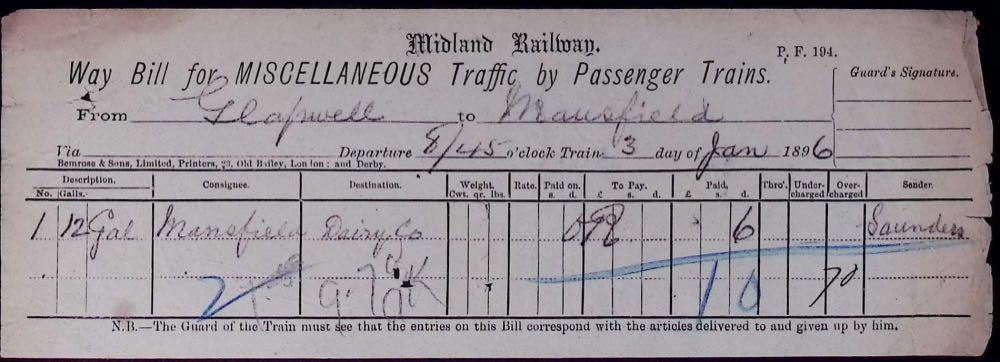 Midland Railway.
P. F. 194.
Way Bill for MISCELLANEOUS Traffic by Passenger Trains.
Guard's Signature.
From Glapwell to Mansfield
Via Departure 8/45 o'clock Train 3 day of Jan 1896
Bemrose & Sons, Limited, Printers, 23, Old Bailey, London; and Derby.
Description. Consignee. Destination. Weight. Rate. Paid on. To Pay. Paid. Thro'. Under- Over- Sender.
No. Galls. Cwt. qr. lbs. s. d. £ s. d. £ s. d. charged charged
1 12 Gal Mansfield Dairy Co 6 Saunders
10
N.B.—The Guard of the Train must see that the entries on this Bill correspond with the articles delivered to and given up by him.